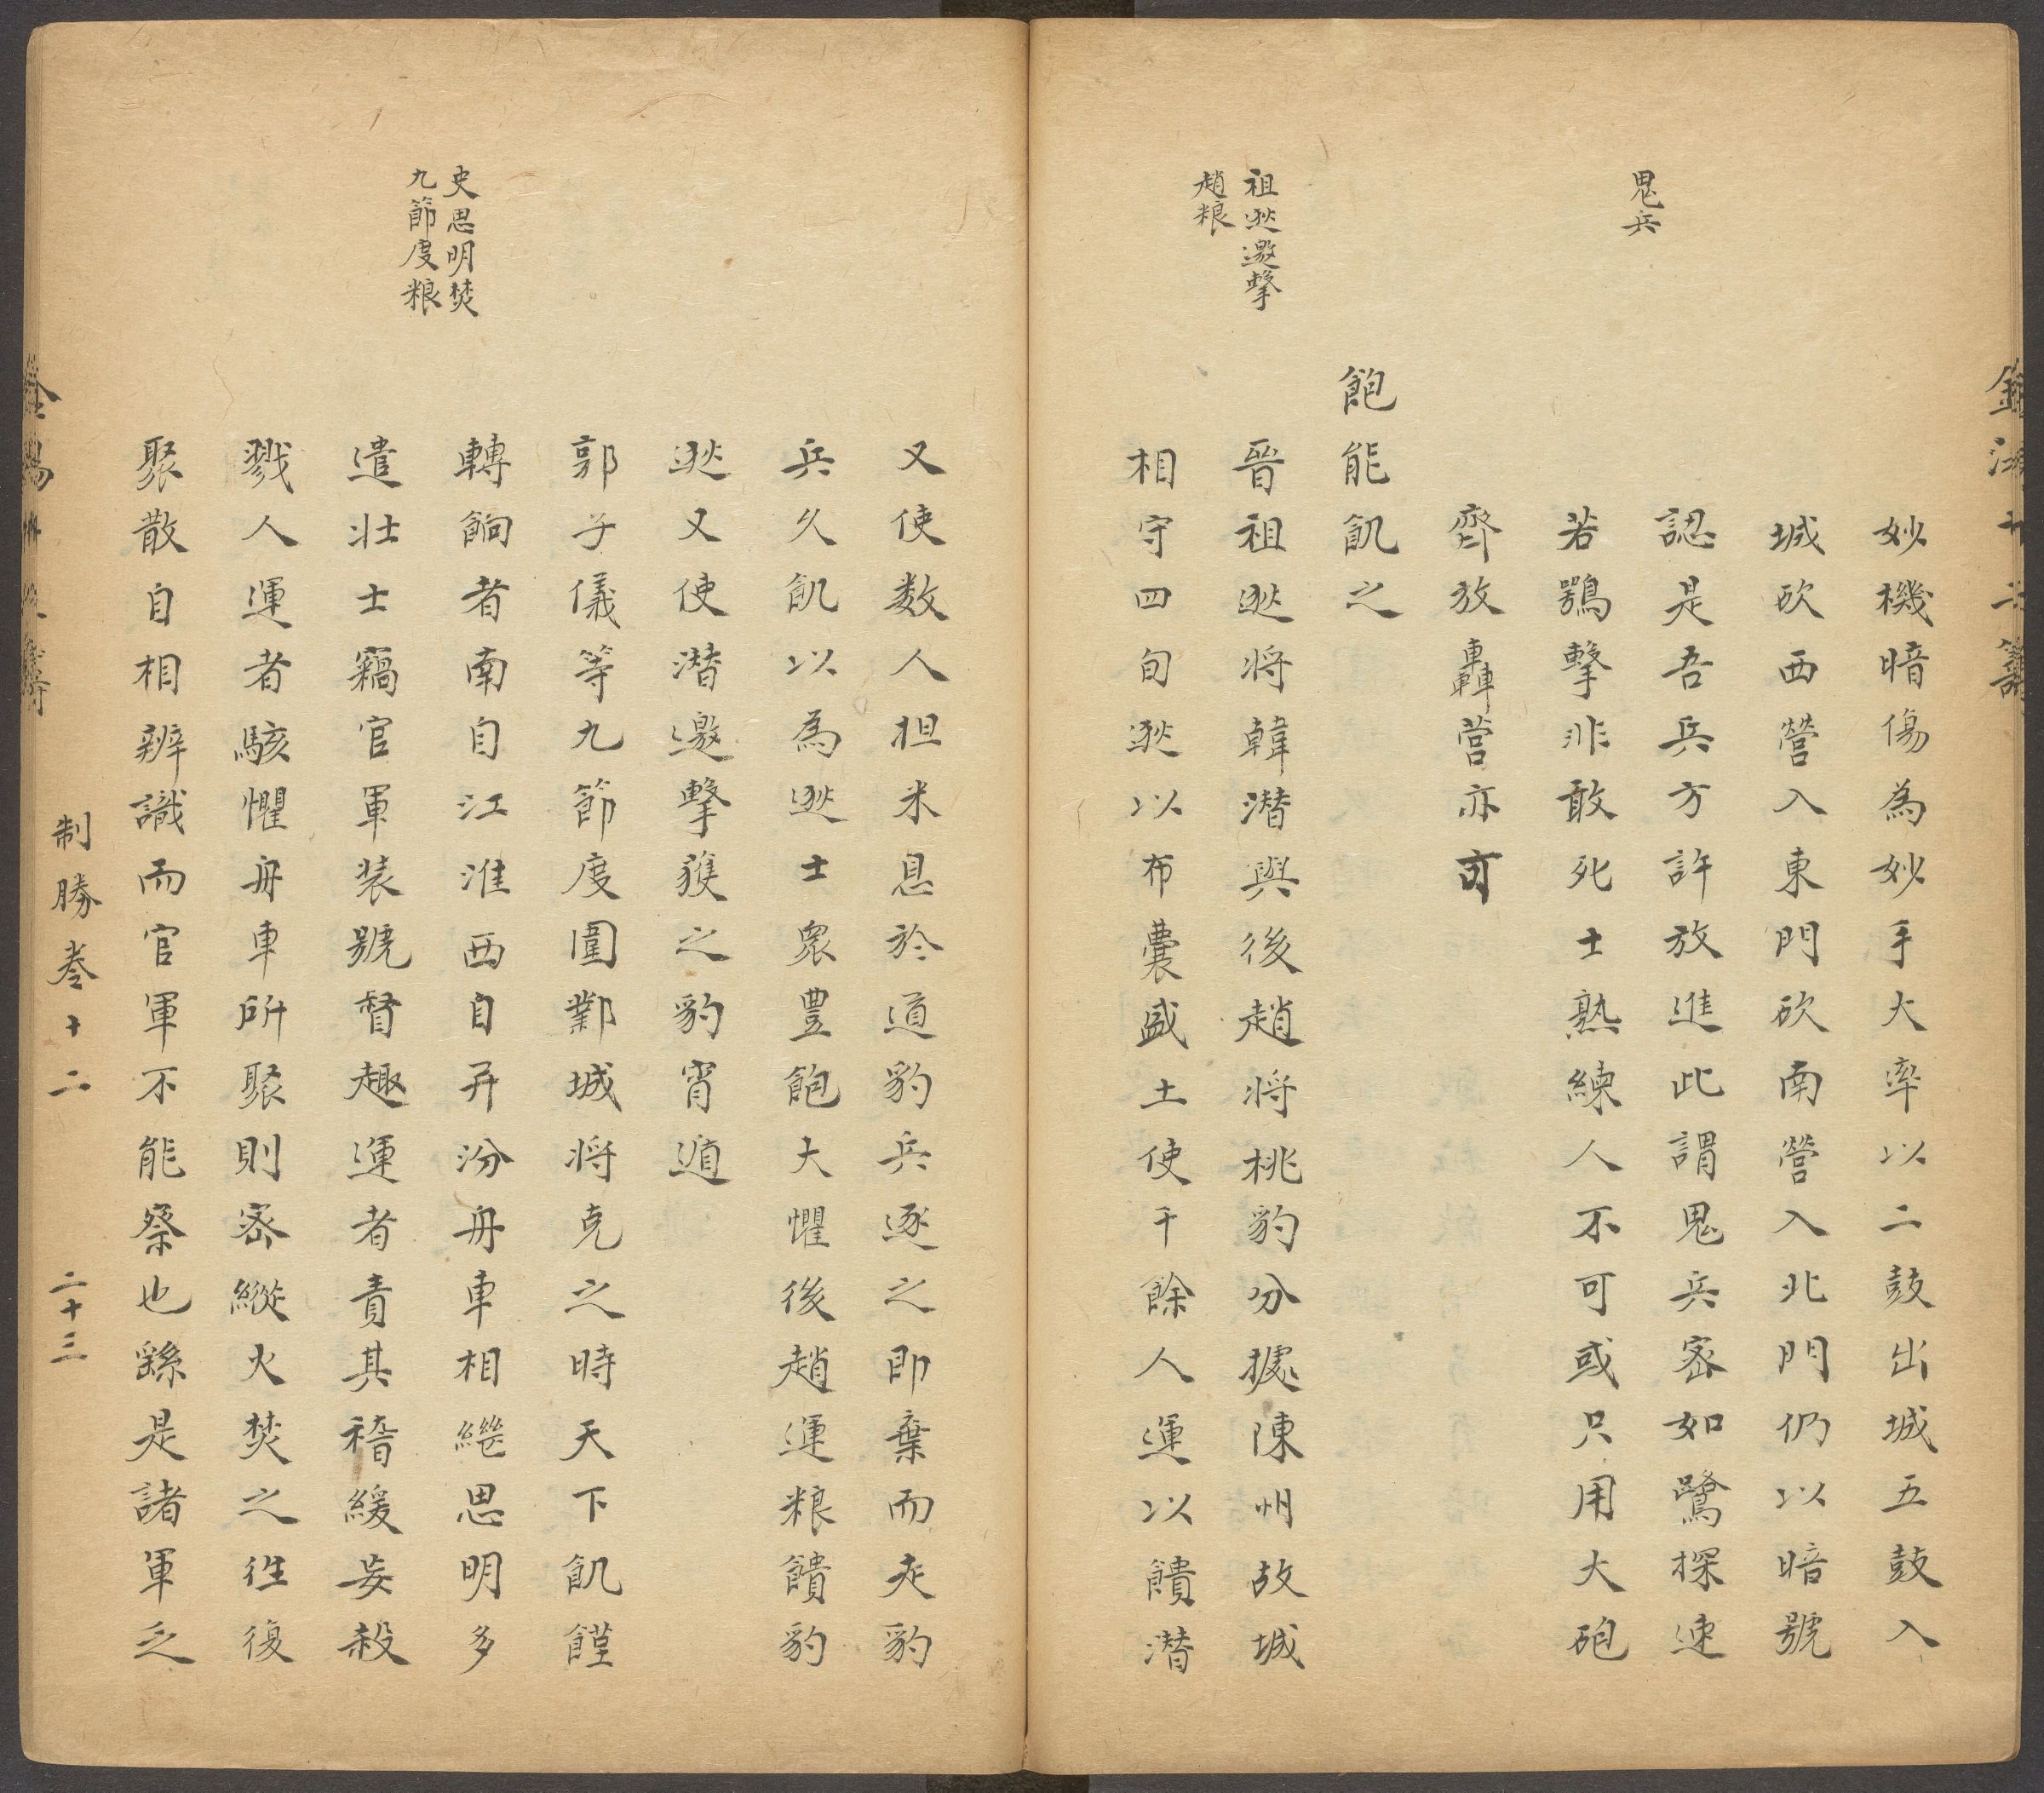 鬼兵
祖逖邀擊
趙粮
妙機暗傷為妙手大率以二鼓出城五鼓入
城砍西營入東門砍南營入北門仍以暗號
認是吾兵方許放進此謂鬼兵宻如鷺探速
若鶚擊非敢死士熟練人不可或只用大砲
齊放轟營亦可
飽能飢之
晉祖逖将韓潜與後趙将桃豹分據陳州故城
相守四旬逖以布囊盛土使千餘人運以饋潜
史思明焚
九節度粮
又使数人担米息於道豹兵逐之即棄而走豹
兵久飢以為逖士衆豊飽大懼後趙運粮饋豹
逖又使潜邀擊獲之豹宵遁
郭子儀等九節度圍鄴城将克之時天下飢饉
轉餉者南自江淮西自并汾舟車相繼思明多
遣壮士竊官軍装號督趣運者責其稽緩妄殺
戮人運者駭懼舟車所聚則宻縱火焚之徃復
聚散自相辨識而官軍不能祭也繇是諸軍乏
制勝卷十二 二十三